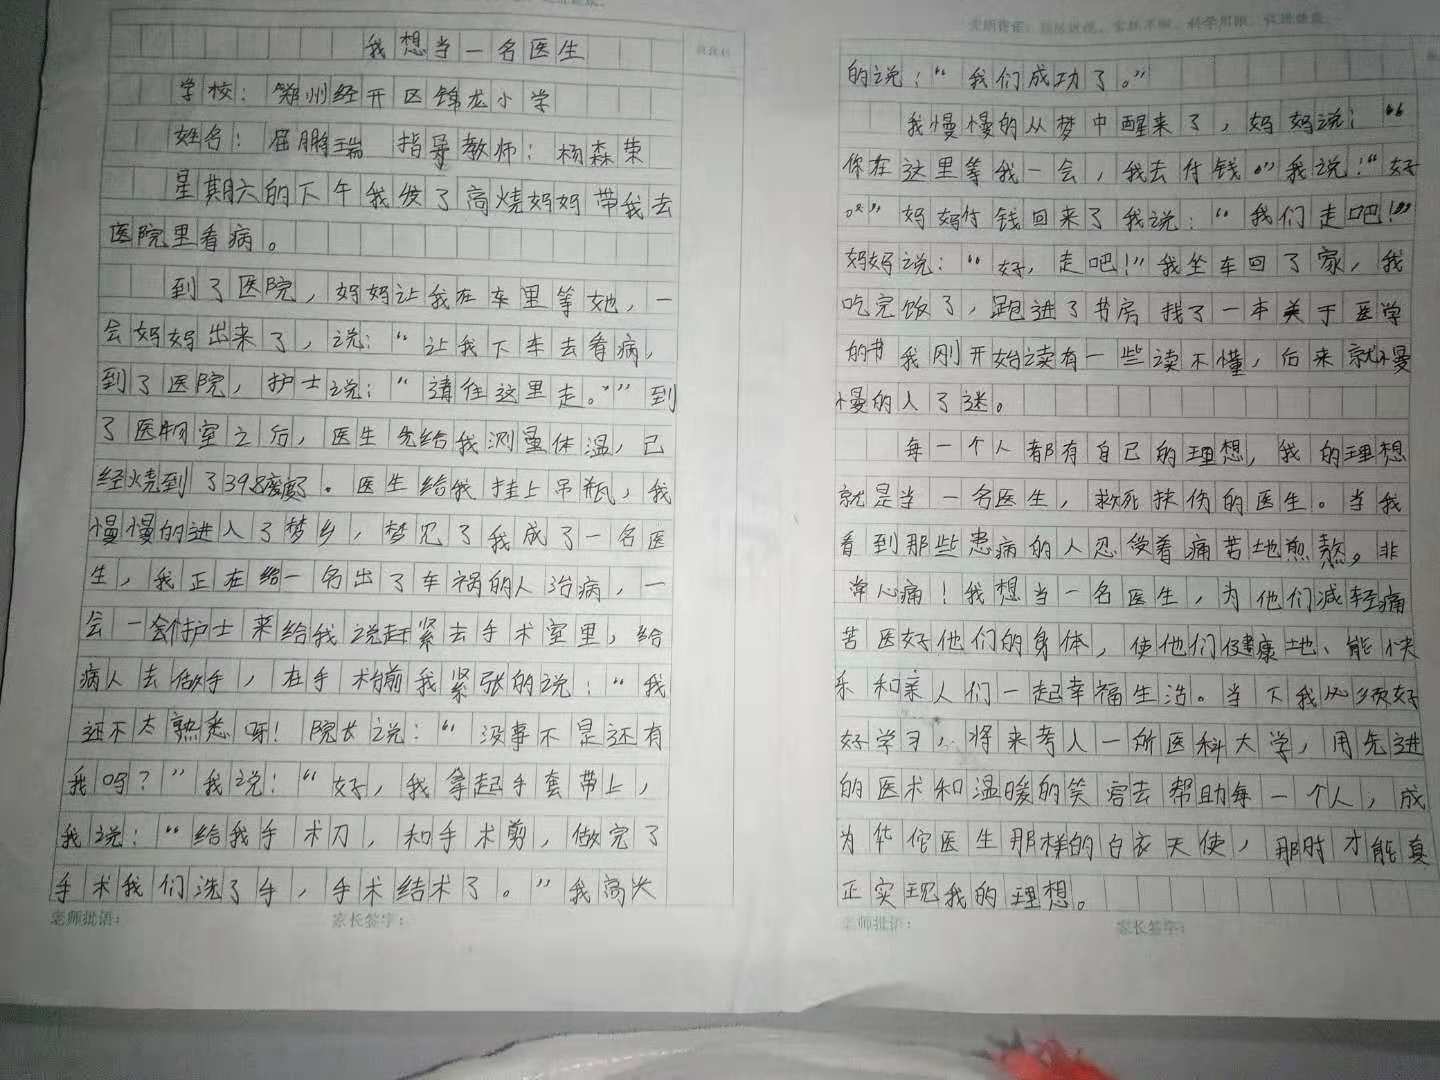 我想当一名医生
学校：郑州经开区锦龙小学
姓名：屈鹏瑞 指导教师：杨森荣
星期六的下午我发了高烧妈妈带我去
医院里看病。
到了医院，妈妈让我在车里等她，一
会妈妈出来了，说：“让我下车去看病，
到了医院，护士说：“请往这里走。”” 到
了医物室之后，医生先给我测量体温，已
经烧到了39.8度了。医生给我挂上吊瓶，我
慢慢的进入了梦乡，梦见了我成了一名医
生，我正在给一名出了车祸的人治病，一
会一会护士来给我说赶紧去手术室里，给
病人去做手，在手术前我紧张的说：“我
还不太熟悉呀！院长说：“没事不是还有
我吗？”我说：“好，我拿起手套带上，
我说：“给我手术刀，和手术剪，做完了
手术我们洗了手，手术结术了。”我高兴
老师批语： 家长签字：
的说：“我们成功了。”
我慢慢的从梦中醒来了，妈妈说：“
你在这里等我一会，我去付钱。”我说：“好
。”妈妈付钱回来了我说：“我们走吧！”
妈妈说：“好，走吧！”我坐车回了家，我
吃完饭了，跑进了书房找了一本关于医学
的书我刚开始读有一些读不懂，后来就慢
慢的入了迷。
每一个人都有自己的理想，我的理想
就是当一名医生，救死扶伤的医生。当我
看到那些患病的人忍受着痛苦地煎熬。非
常心痛！我想当一名医生，为他们减轻痛
苦医好他们的身体，使他们健康地、能快
乐和亲人们一起幸福生活。当下我必须好
好学习，将来考入一所医科大学，用先进
的医术和温暖的笑容去帮助每一个人，成
为华佗医生那样的白衣天使，那时才能真
正实现我的理想。
老师批语： 家长签字：